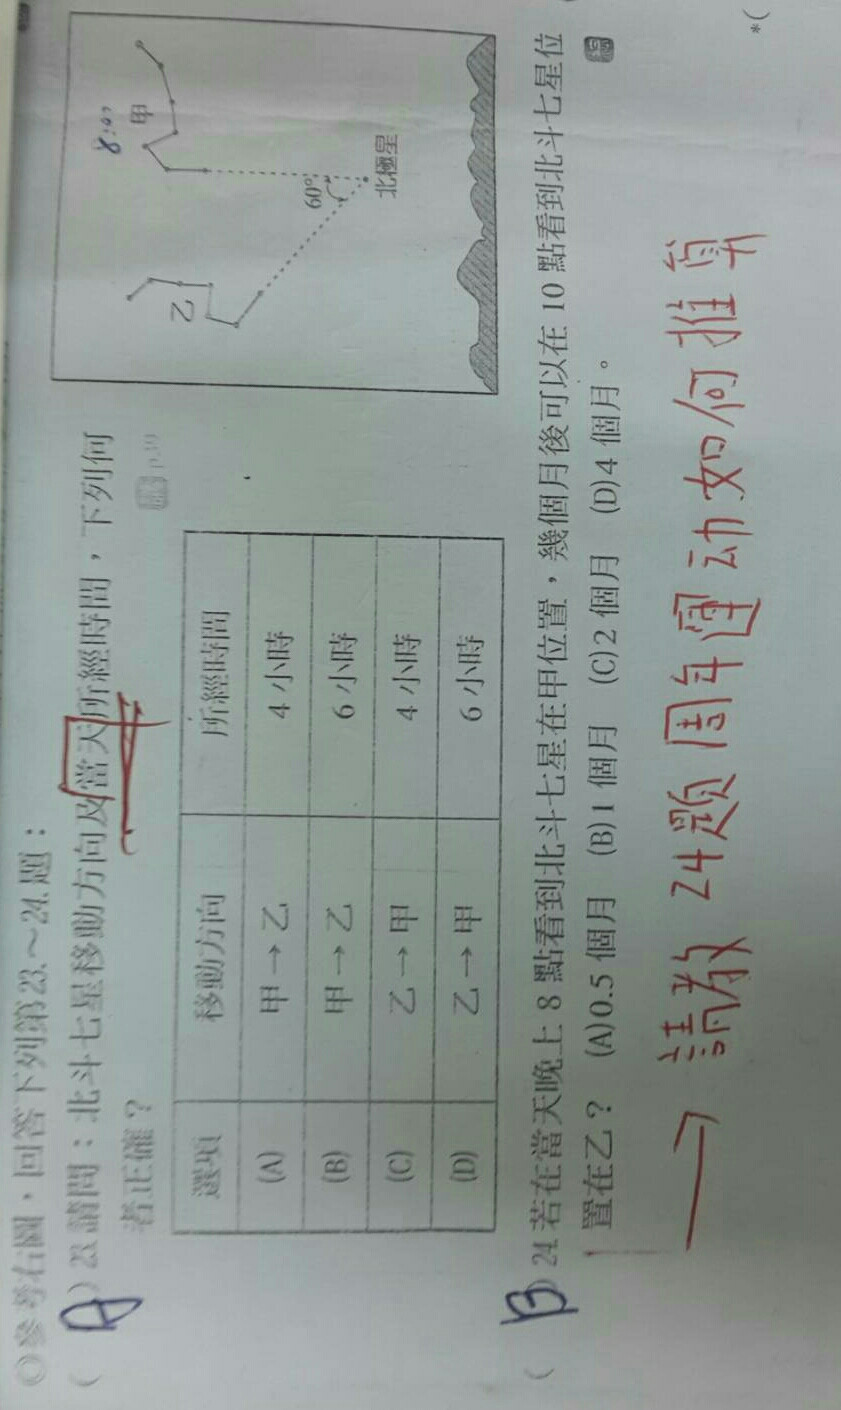 ◎參考右圖，回答下列第23.～24.題：
(A)23.請問：北斗七星移動方向及當天所經時間，下列何
者正確？
選項 移動方向 所經時間
(A) 甲→乙 4小時
(B) 甲→乙 6小時
(C) 乙→甲 4小時
(D) 乙→甲 6小時
8:00
甲
乙
60°
北極星
(B)24.若在當天晚上8點看到北斗七星在甲位置，幾個月後可以在10點看到北斗七星位
置在乙？ (A)0.5個月 (B)1個月 (C)2個月 (D)4個月。
→請教24題周年運动如何推算
*(